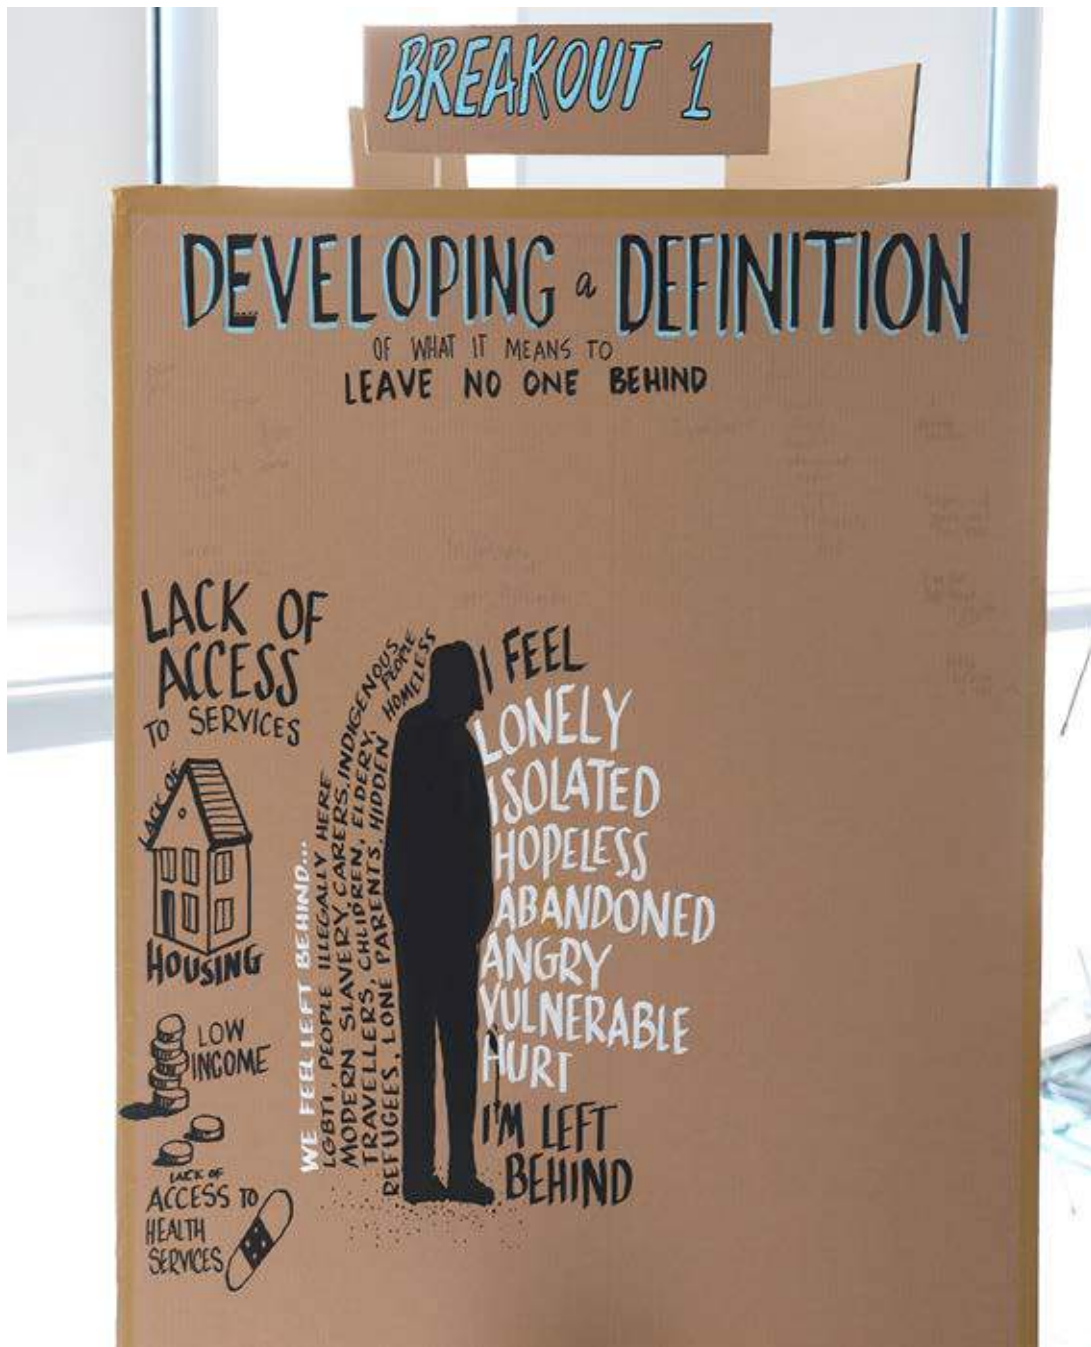 BREAKOUT 1
DEVELOPING a DEFINITION
OF WHAT IT MEANS TO
LEAVE NO ONE BEHIND
LACK OF
ACCESS
TO SERVICES
LACK OF
HOUSING
LOW
INCOME
LACK OF
ACCESS TO
HEALTH
SERVICES
WE FEEL LEFT BEHIND...
LGBTI, PEOPLE ILLEGALLY HERE
MODERN SLAVERY, CARERS, INDIGENOUS
TRAVELLERS, CHLIDREN, ELDERY, PEOPLE
REFUGEES, LONE PARENTS, HIDDEN HOMELESS
I FEEL
LONELY
ISOLATED
HOPELESS
ABANDONED
ANGRY
VULNERABLE
HURT
I'M LEFT
BEHIND